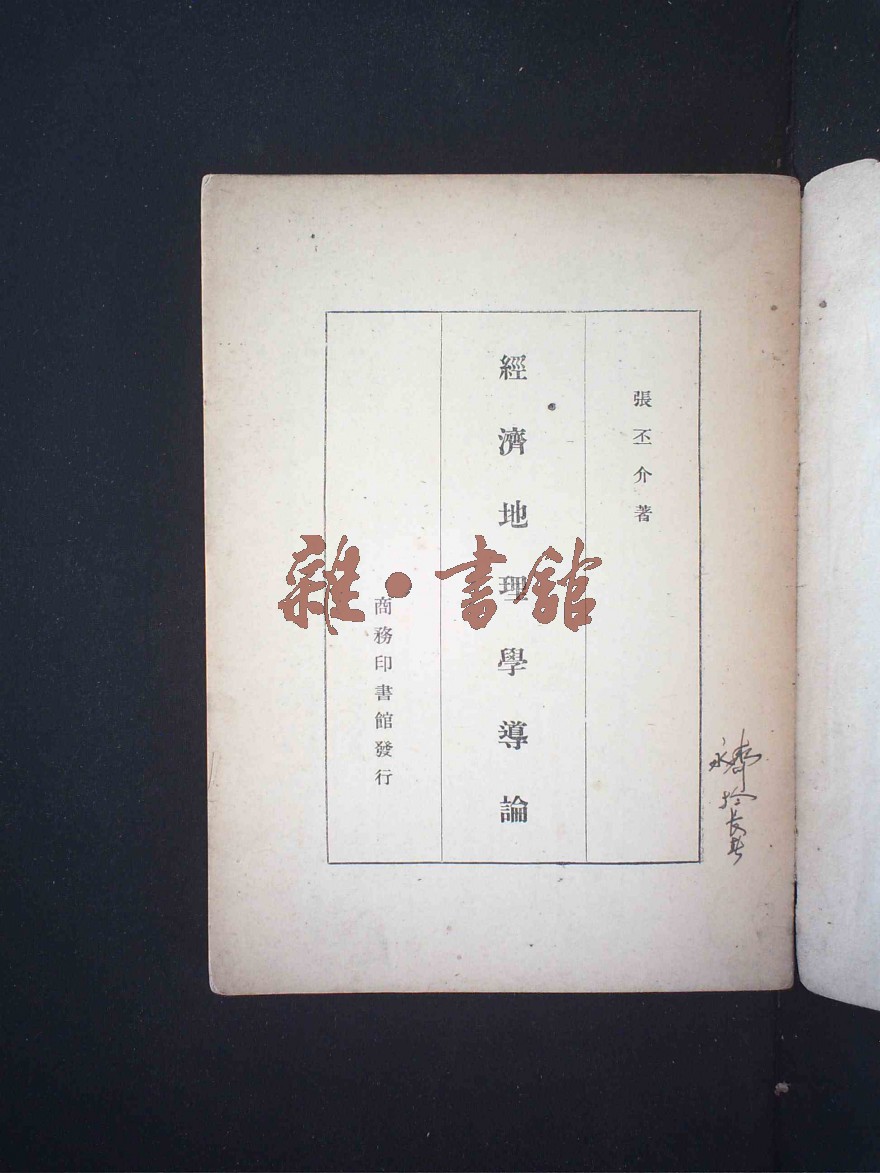 張丕介著
經濟地理學導論
商務印書館發行
雜·書館